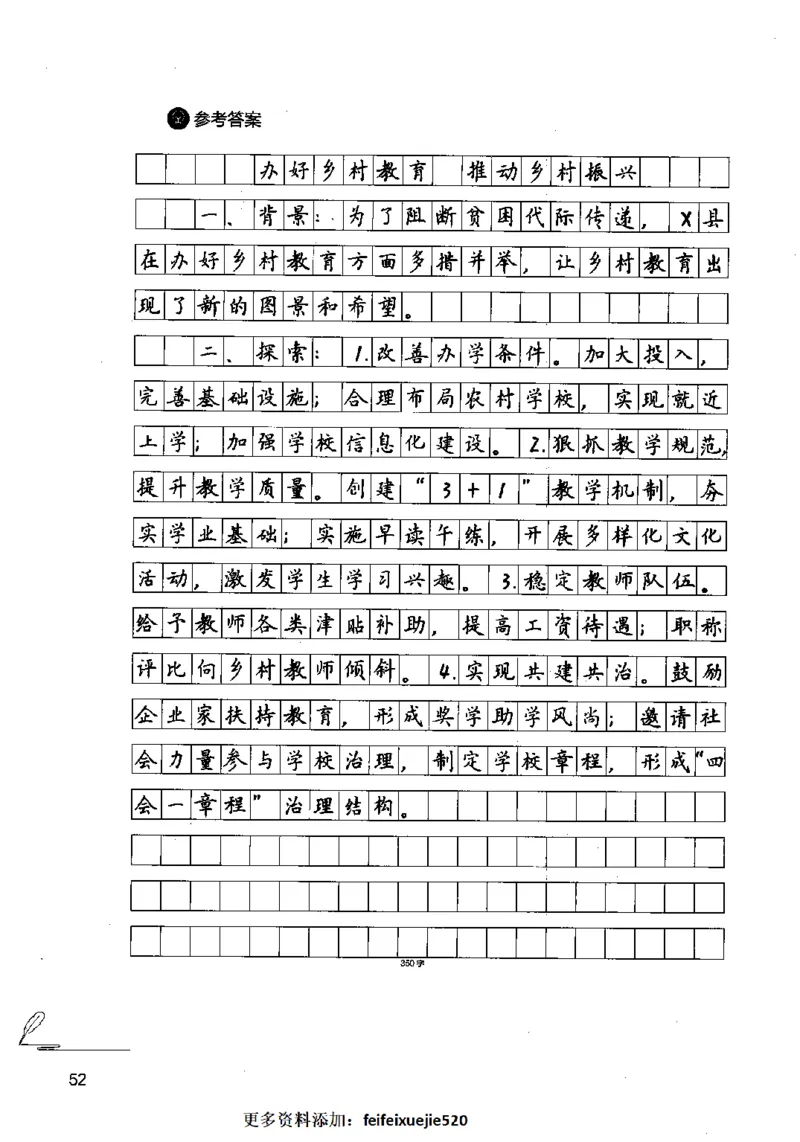 参考答案
办好乡村教育 推动乡村振兴
一、背景：为了阻断贫困代际传递，X县
在办好乡村教育方面多措并举，让乡村教育出
现了新的图景和希望。
二、探索：1.改善办学条件。加大投入，
完善基础设施；合理布局农村学校，实现就近
上学；加强学校信息化建设。2.狠抓教学规范，
提升教学质量。创建“3+1”教学机制，夯
实学业基础；实施早读午练，开展多样化文化
活动，激发学生学习兴趣。3.稳定教师队伍。
给予教师各类津贴补助，提高工资待遇；职称
评比向乡村教师倾斜。4.实现共建共治。鼓励
企业家扶持教育，形成奖学助学风尚；邀请社
会力量参与学校治理，制定学校章程，形成“四
会一章程”治理结构。
350字
52
更多资料添加：feifeixuejie520